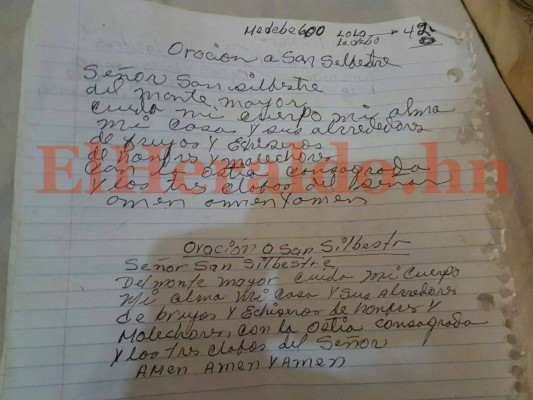 Medebe 600 Lola 42
ledebo 8
Oracion a San Selbestre
Señor San silbestre
del monte mayor
Cuida mi cuerpo mi alma
mi casa y sus alrededores
de brujos y Echiseros
de honbres y malechores
Con la ostia consagrada
y los tres clabos del señor
amen amen y amen
ElHeraldo.hn
Oracion a San Silbestr
Señor San Silbestre
Del monte mayor cuida mi cuerpo
mi alma mi casa y sus alredores
de brujos y Echiseros de honbres y
Malechores, con la ostia consagrada
y los tres clabos del Señor
AMEN AMEN Y AMEN